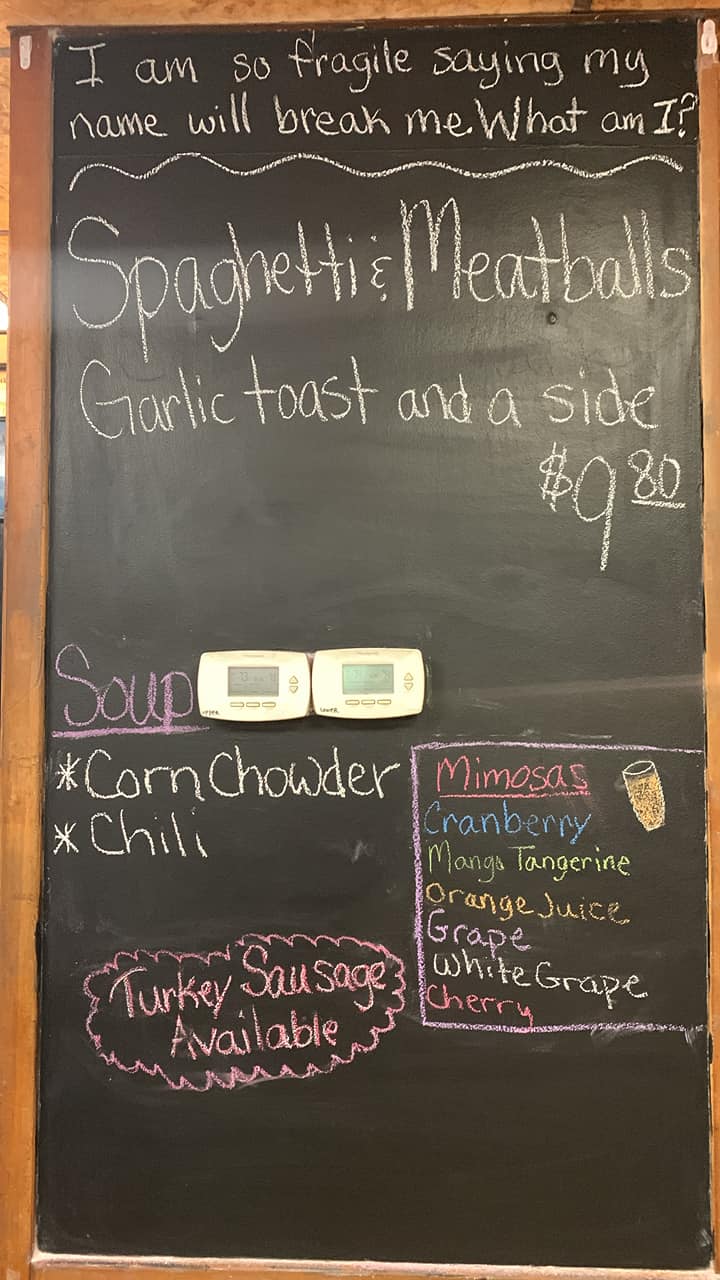 I am so fragile saying my
name will break me. What am I?
Spaghetti & Meatballs
Garlic toast and a side
$9 80
Soup
UPPER
LOWER
* Corn Chowder
* Chili
Mimosas
Cranberry
Mango Tangerine
Orange Juice
Grape
White Grape
Cherry
Turkey Sausage
Available